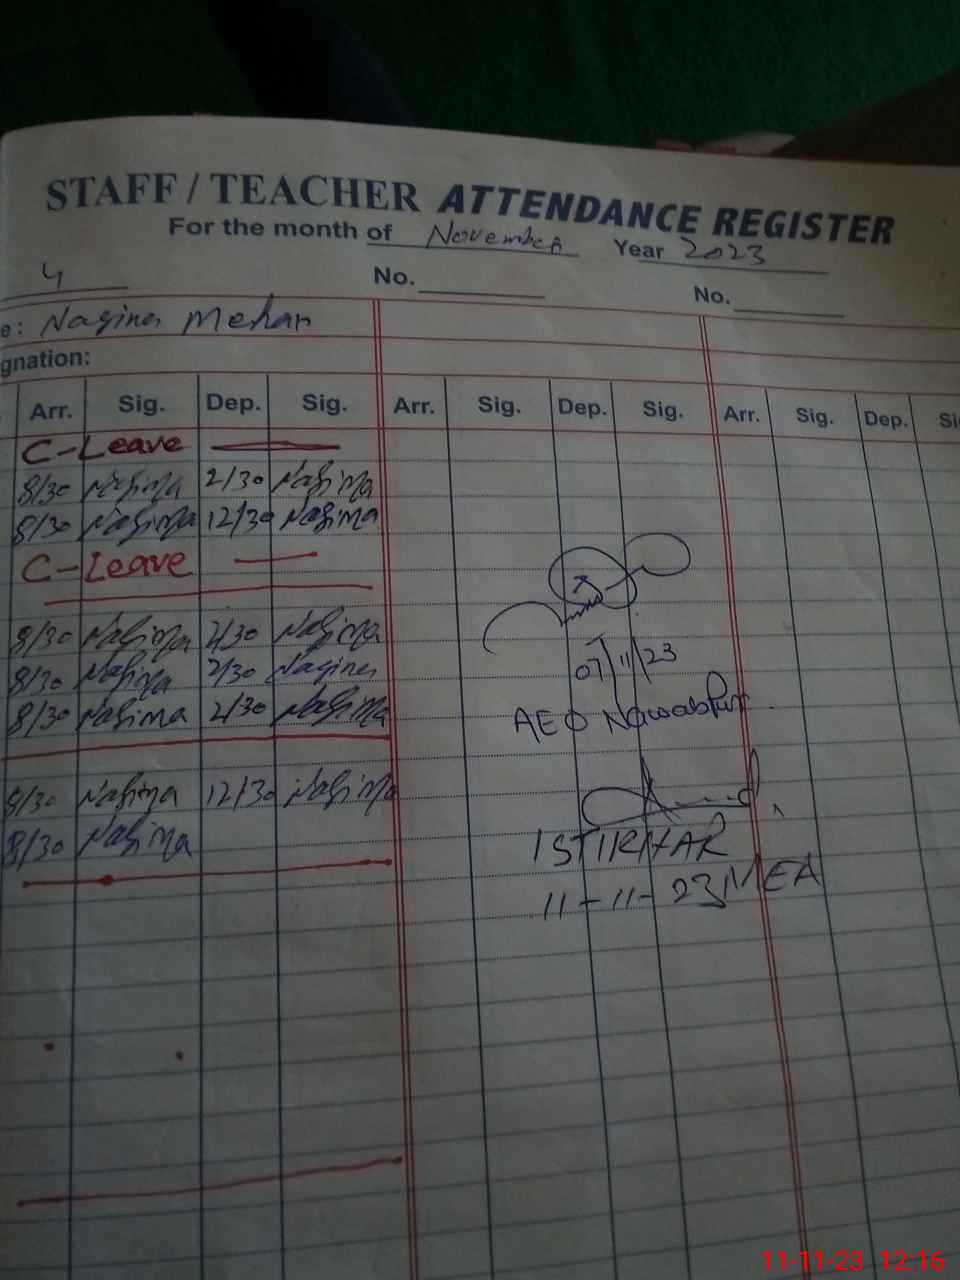 STAFF / TEACHER ATTENDANCE REGISTER
For the month of November Year 2023
4 No. No.
e: Nagina Mehar
gnation:
Arr. Sig. Dep. Sig. Arr. Sig. Dep. Sig. Arr. Sig. Dep. Si
C-Leave
8/30 Nagina 2/30 Nagina
8/30 Nagina 12/30 Nagina
C-Leave
8/30 Nagina 2/30 Nagina
07/11/23
8/30 Nagina 2/30 Nagina
8/30 Nagina 2/30 Nagina
AEO Nawabpur
8/30 Nagina 12/30 Nagina
8/30 Nagina
ISTIKHAR
11-11-23 MEA
11-11-23 12:16